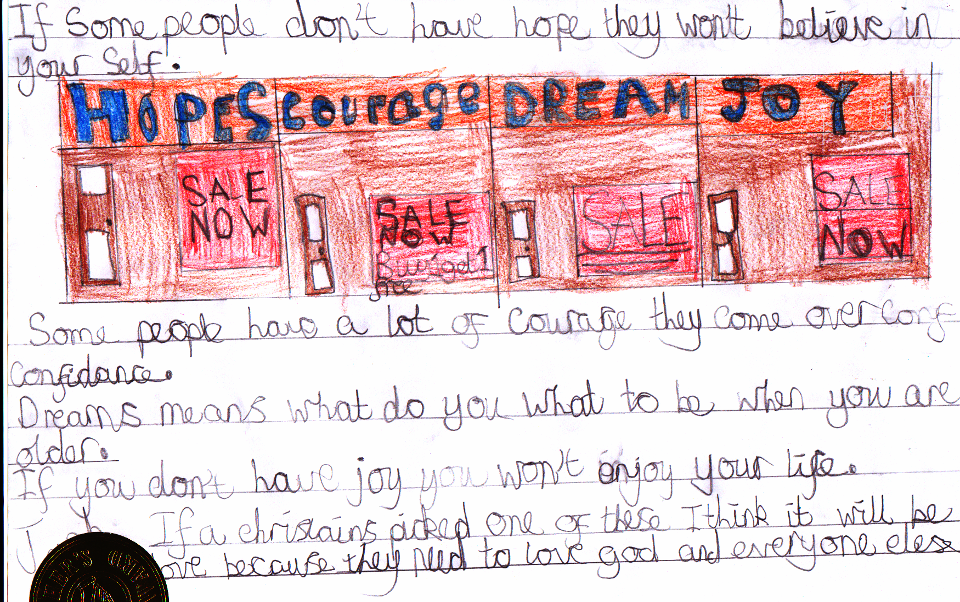 If Some people don't have hope they won't believe in
your Self.
HOPES courage DREAM JOY
SALE
NOW
SALE
NOW
Budget 1
free
SALE
SALE
NOW
Some people have a lot of courage they come over conf-
confidance.
Dreams means what do you what to be when you are
older.
If you don't have joy you won't enjoy your life.
If a chrisains picked one of these I think it will be
ove because they need to love god and everyone eles